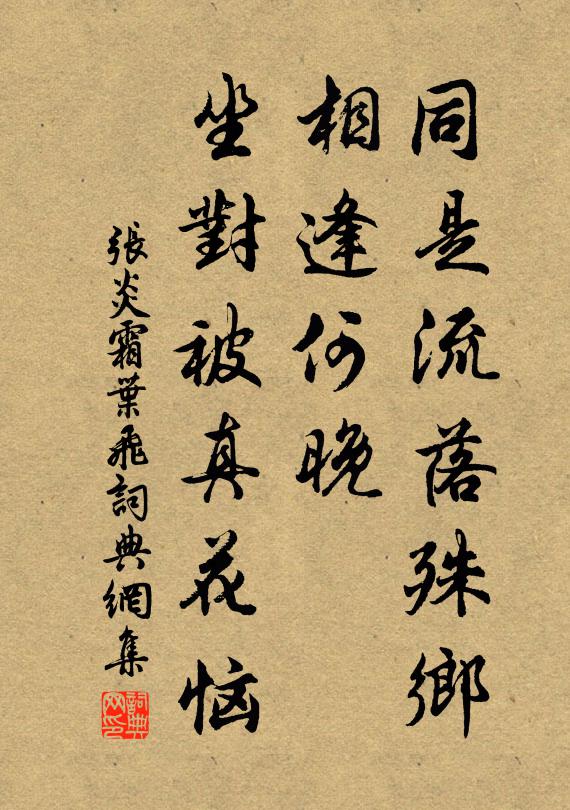 同是流落殊鄉
相逢何晚
坐對被真花惱
張炎霜葉飛詞典網集
詞典网印